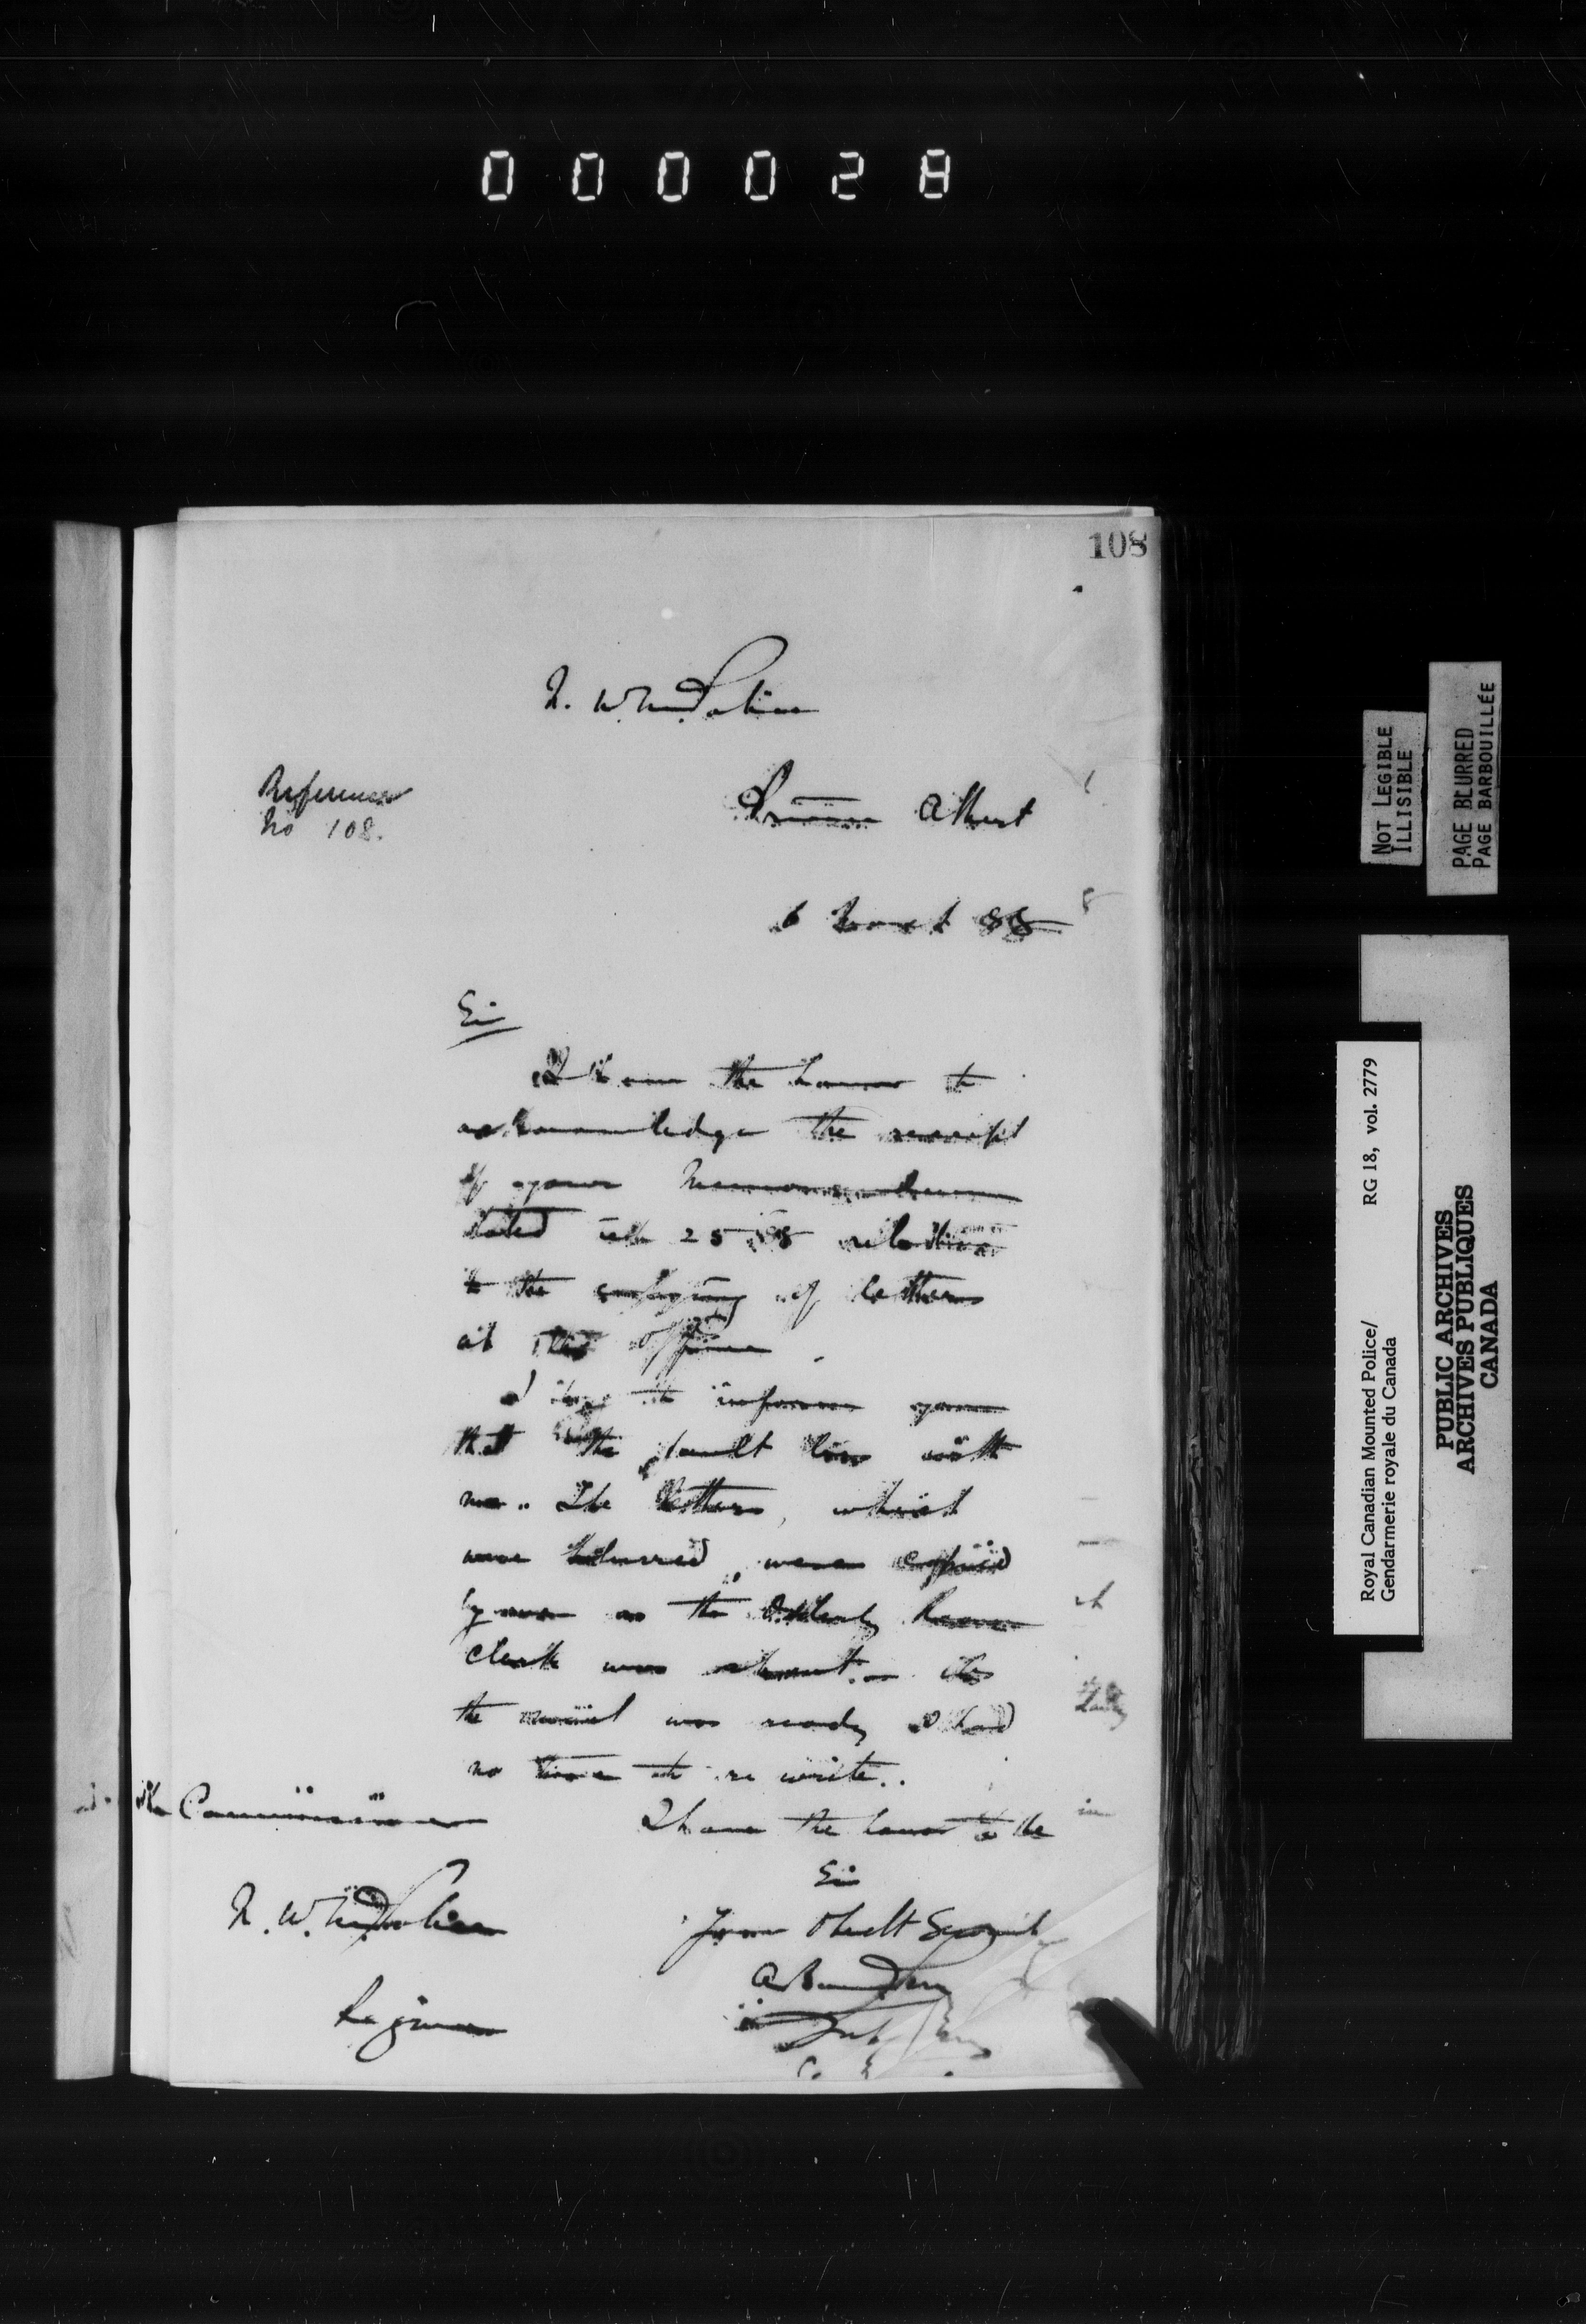 000028
108
N. W. M. Police
Reference
No 108.
Prince Albert
6 March 88
Sir
I have the honor to
acknowledge the receipt
of your Memorandum
dated 25 88 relative
to the copying of letters
at this office.
I beg to inform you
that the fault lies with
me. The letters, which
were blurred, were copied
by me as the Orderly Room
clerk was absent. As
the mail was ready I had
no time to re write.
The Commissioner
I have the honor to be
Sir
N. W. M. Police
Your Obedt Servant
Regina
NOT LEGIBLE
ILLISIBLE
PAGE BLURRED
PAGE BARBOUILLÉE
Royal Canadian Mounted Police/ RG 18, vol. 2779
Gendarmerie royale du Canada
PUBLIC ARCHIVES
ARCHIVES PUBLIQUES
CANADA